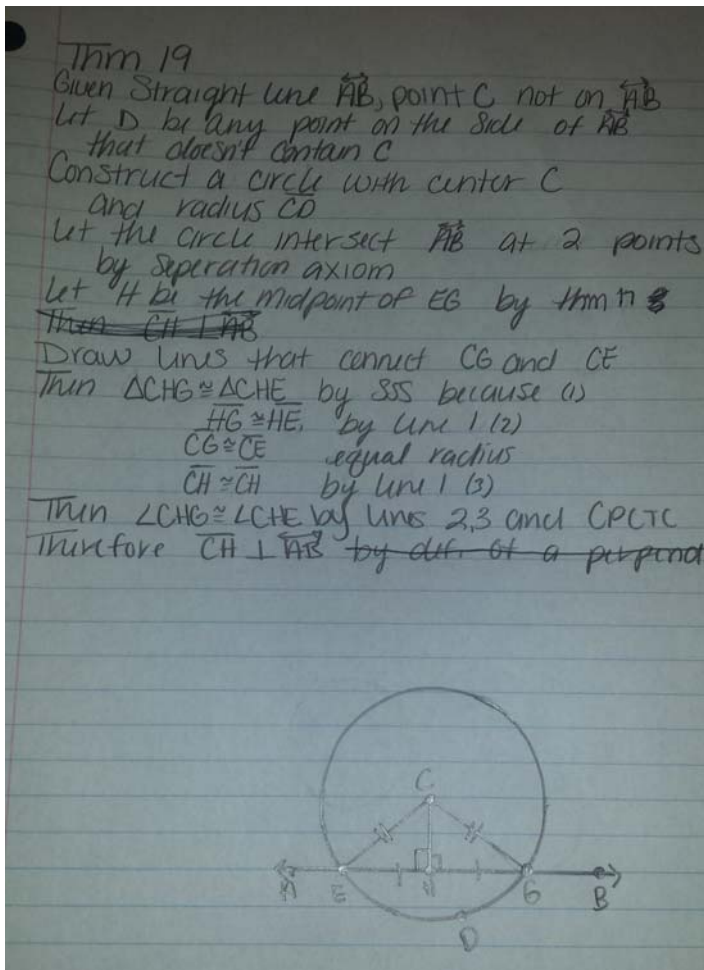 Thm 19
Given Straight line AB, point C not on AB
Let D be any point on the side of AB
that doesn't contain C
Construct a circle with center C
and radius CD
Let the circle intersect AB at 2 points
by seperation axiom
Let H be the midpoint of EG by thm
Then CH ⊥ AB
Draw lines that connect CG and CE
Then ΔCHG ≅ ΔCHE by SSS because (1)
HG ≅ HE, by line 1 (2)
CG ≅ CE equal radius
CH ≅ CH by line 1 (3)
Then ∠CHG ≅ ∠CHE by lines 2,3 and CPCTC
Therefore CH ⊥ AB by def. of a perpend
C
A E H G B
D